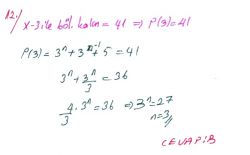 12.) x-3 ile böl. kalan = 41 ⇒ P(3)=41
P(3) = 3ⁿ + 3ⁿ⁻¹ + 5 = 41
3ⁿ + 3ⁿ/3 = 36
4/3 · 3ⁿ = 36 ⇒ 3ⁿ = 27
n = 3 //
CEVAP: B